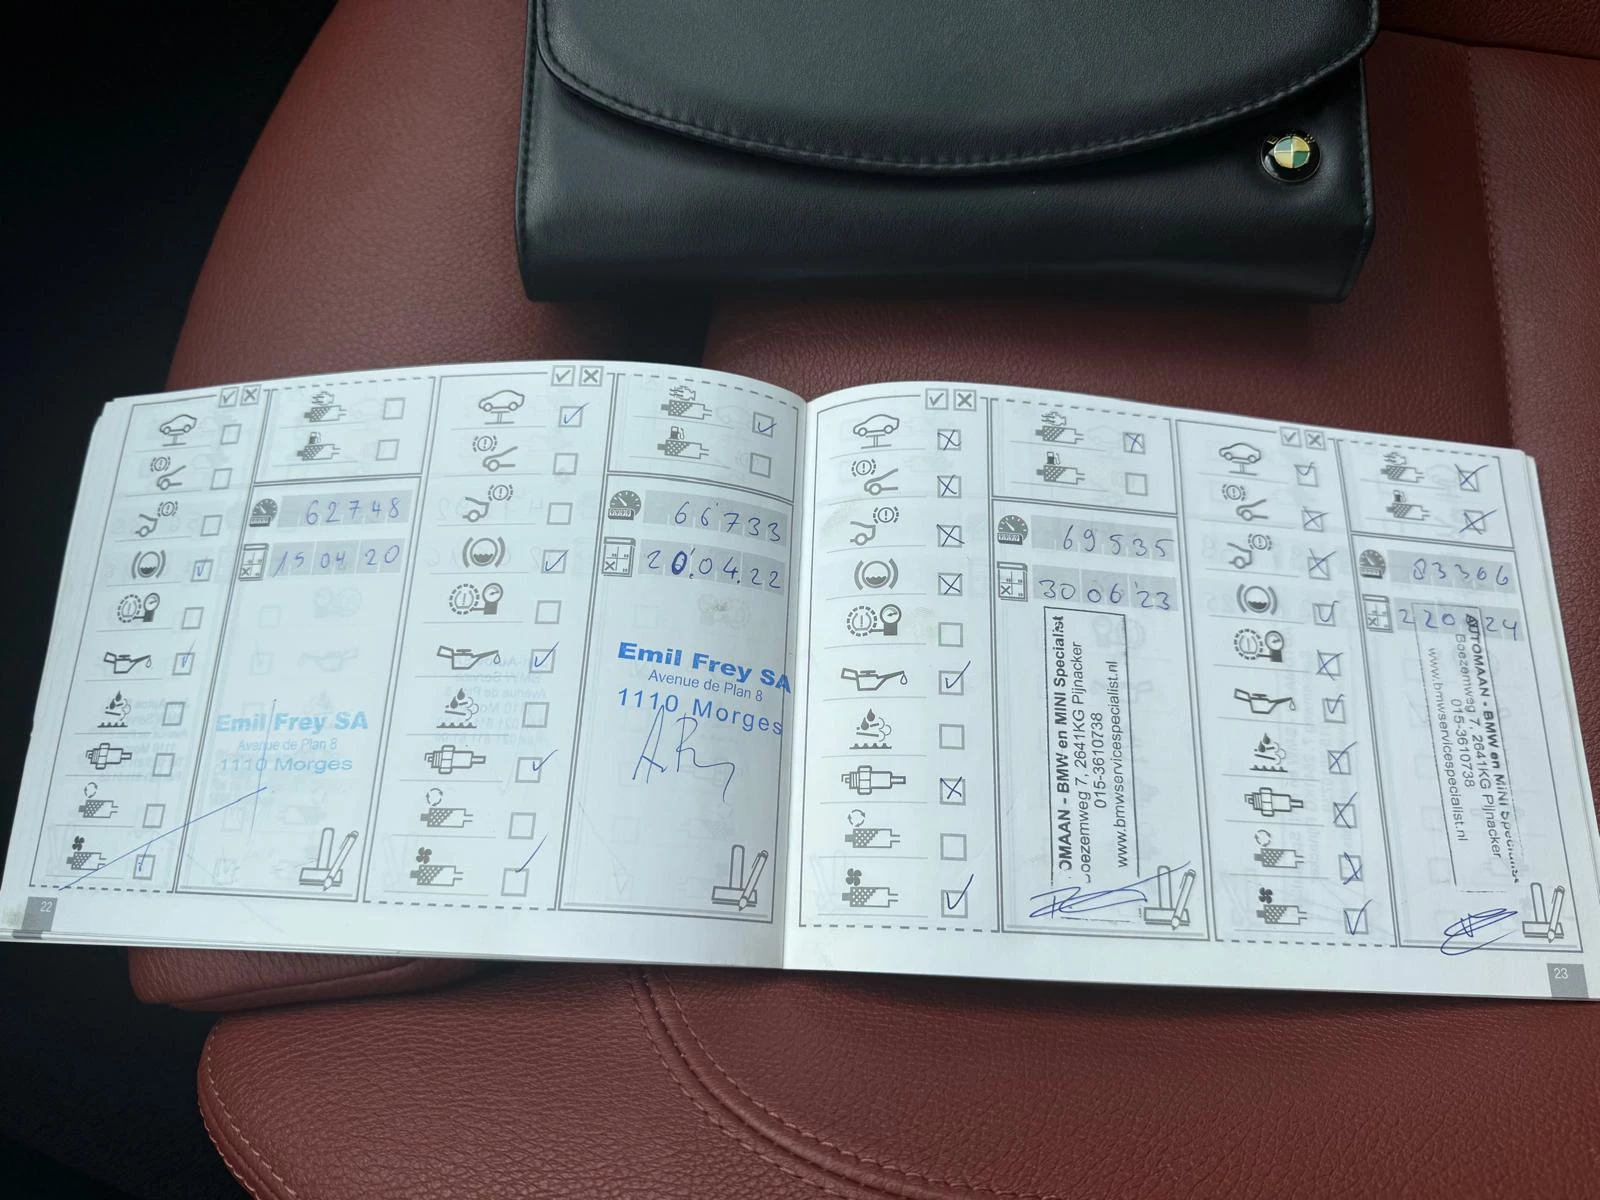 62748
15 04 20
Emil Frey SA
Avenue de Plan 8
1110 Morges
22
66733
20.04.22
Emil Frey SA
Avenue de Plan 8
1110 Morges
69535
30 06 23
OMAAN - BMW en MINI Specialist
oezemweg 7, 2641KG Pijnacker
015-3610738
www.bmwservicespecialist.nl
83366
24
AUTOMAAN - BMW en MINI Specialist
Boezemweg 7, 2641KG Pijnacker
015-3610738
www.bmwservicespecialist.nl
23